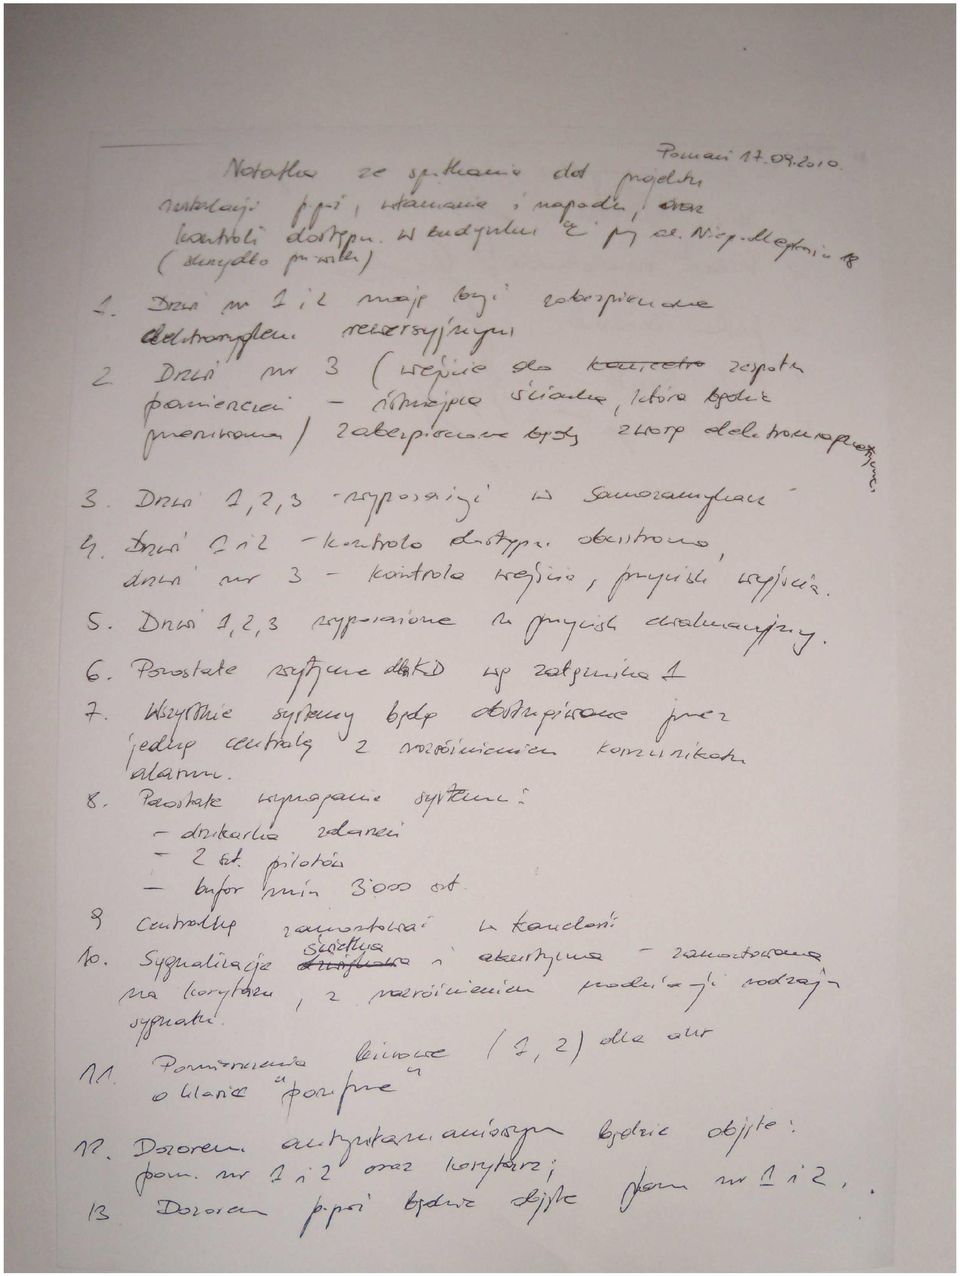 Poznań 17.09.2010.
Notatka ze spotkania dot projektu
instalacji p.poż, włamania i napadu, oraz
kontroli dostępu. w budynku "C" przy al. Niepodległości 18
(skrzydło prawe)
1. Drzwi nr 1 i 2 mają być zabezpieczone
elektroryglem rewersyjnym
2. Drzwi nr 3 (wejście do zespołu
pomieszczeń – istniejąca ścianka, która będzie
przesuwana) zabezpieczone będą zworą elektromagnetyczną
3. Drzwi 1,2,3 - wyposażyć w samozamykacz
4. Drzwi 1 i 2 – kontrola dostępu obustronna,
drzwi nr 3 – kontrola wejścia, przycisk wyjścia.
5. Drzwi 1,2,3 wyposażone w przycisk ewakuacyjny.
6. Pozostałe wytyczne dla KD wg załącznika 1
7. Wszystkie systemy będą obsługiwane przez
jedną centralę z rozróżnieniem komunikatu
alarmu.
8. Pozostałe wymagania systemu:
– drukarka zdarzeń
– 2 szt. pilotów
– bufor min 3000 szt.
9 Centralkę zamontować w kancelarii
10. Sygnalizacja świetlna i akustyczna – zamontowana
na korytarzu, z rozróżnieniem rodzaju
sygnału.
11. Pomieszczenia biurowe (1,2) dla
o klauzuli "poufne"
12. Dozorem antywłamaniowym będzie objęte:
pom. nr 1 i 2 oraz korytarz;
13 Dozorem p.poż będzie objęte pom nr 1 i 2.